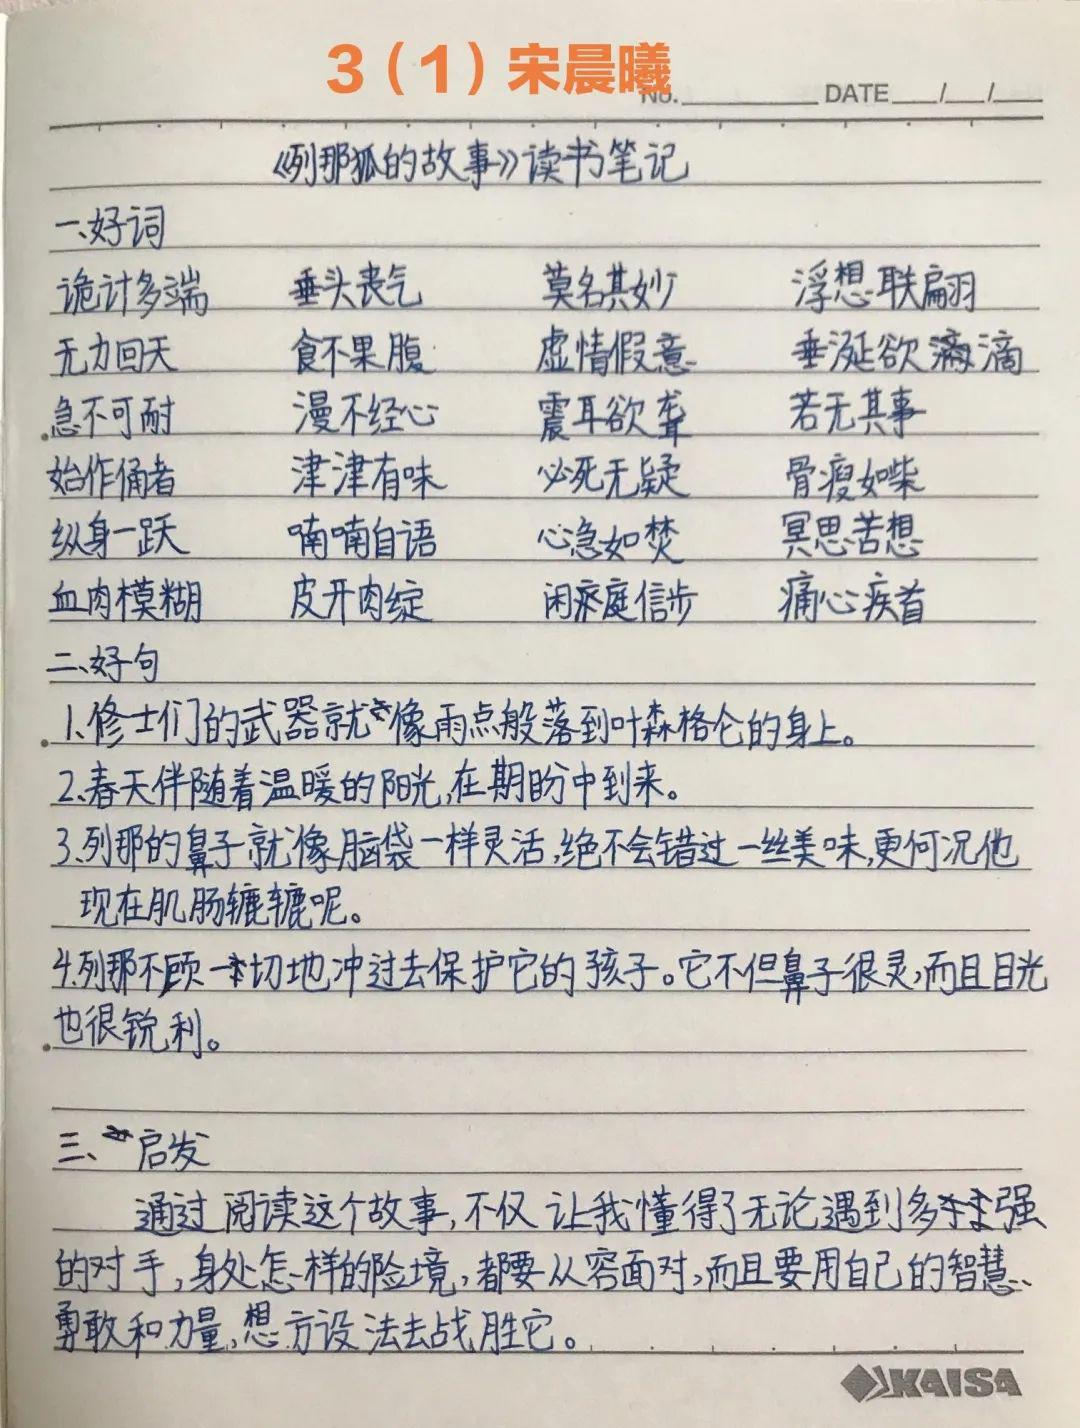 3（1）宋晨曦
No. DATE / /
《列那狐的故事》读书笔记
一、好词
诡计多端 垂头丧气 莫名其妙 浮想联翩
无力回天 食不果腹 虚情假意 垂涎欲滴
急不可耐 漫不经心 震耳欲聋 若无其事
始作俑者 津津有味 必死无疑 骨瘦如柴
纵身一跃 喃喃自语 心急如焚 冥思苦想
血肉模糊 皮开肉绽 闲庭信步 痛心疾首
二、好句
1、修士们的武器就像雨点般落到叶森格仑的身上。
2、春天伴随着温暖的阳光,在期盼中到来。
3、列那的鼻子就像脑袋一样灵活,绝不会错过一丝美味,更何况他
现在肌肠辘辘呢。
4、列那不顾一切地冲过去保护它的孩子。它不但鼻子很灵,而且目光
也很锐利。
三、启发
通过阅读这个故事,不仅让我懂得了无论遇到多强
的对手,身处怎样的险境,都要从容面对,而且要用自己的智慧、
勇敢和力量,想方设法去战胜它。
KAISA